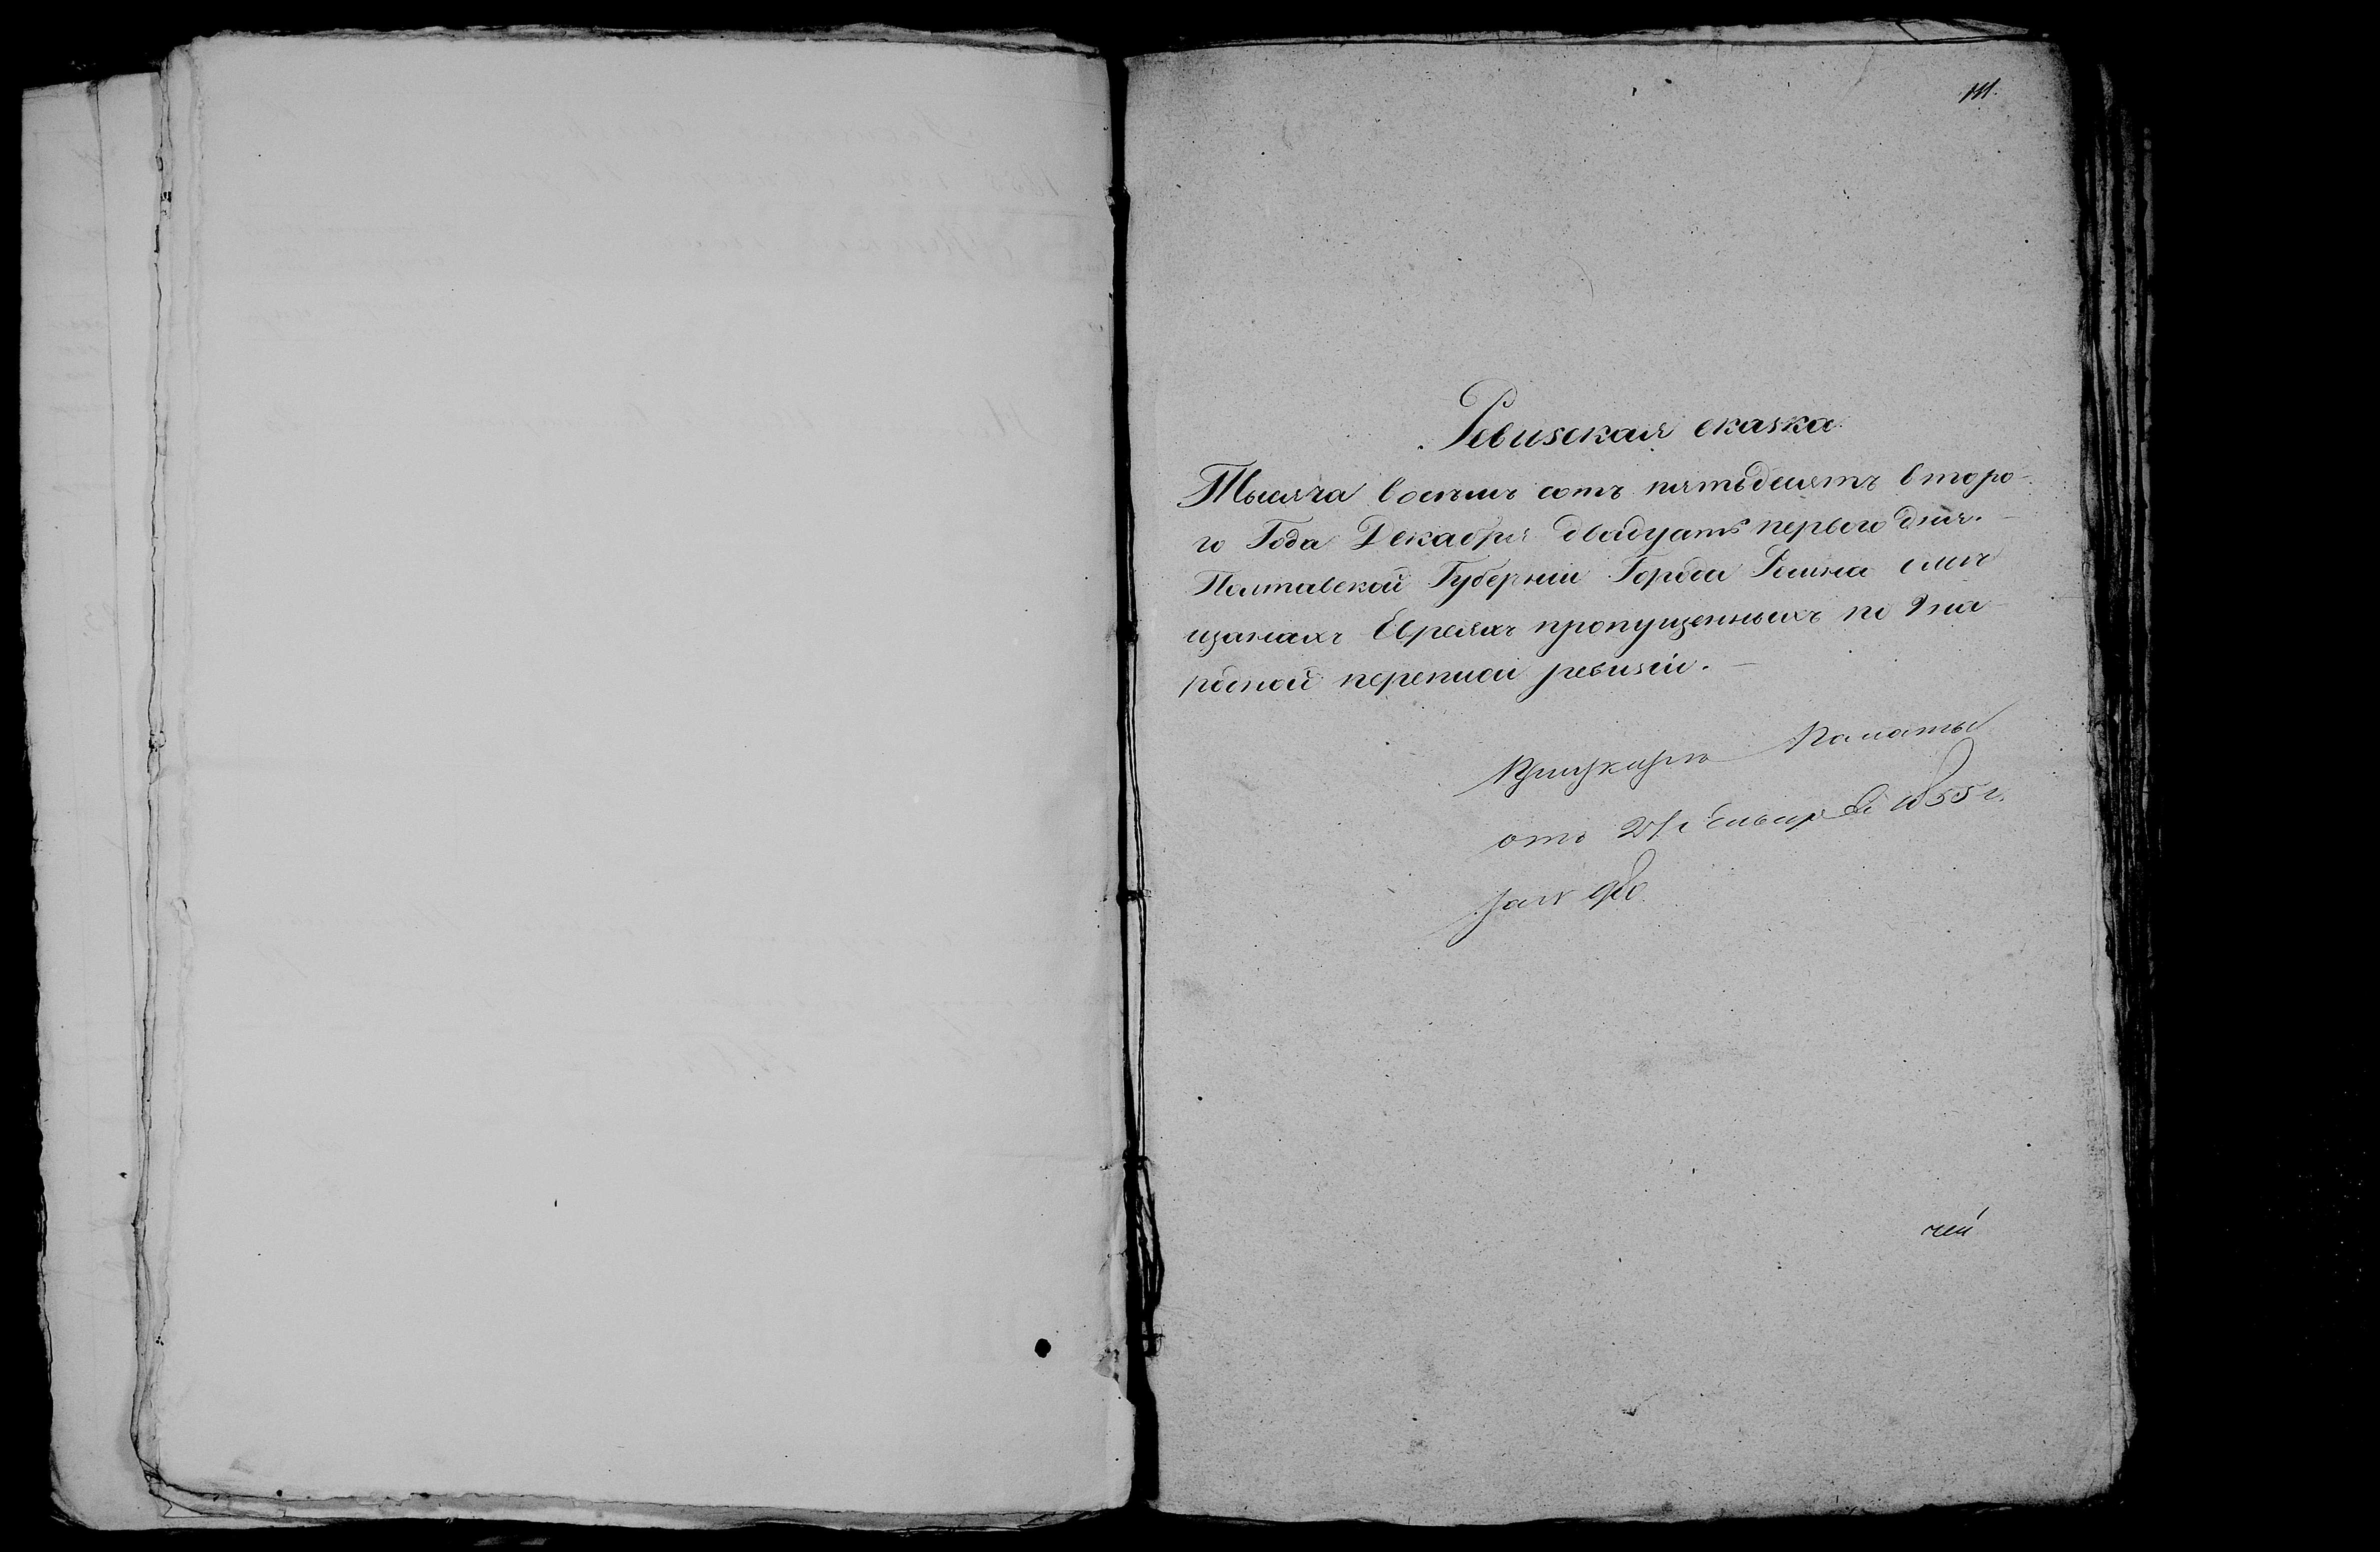 111.
Ревизская сказка
Тысяча восемь сотъ пятьдесятъ второ-
го Года Декабря двадцать перваго дня.
Полтавской Губерніи Города Ромна о мѣ
щанахъ Евреяхъ пропущенныхъ по 9 на
родной переписи ревизіи.
Палаты
отъ Января 1855 г.
за №